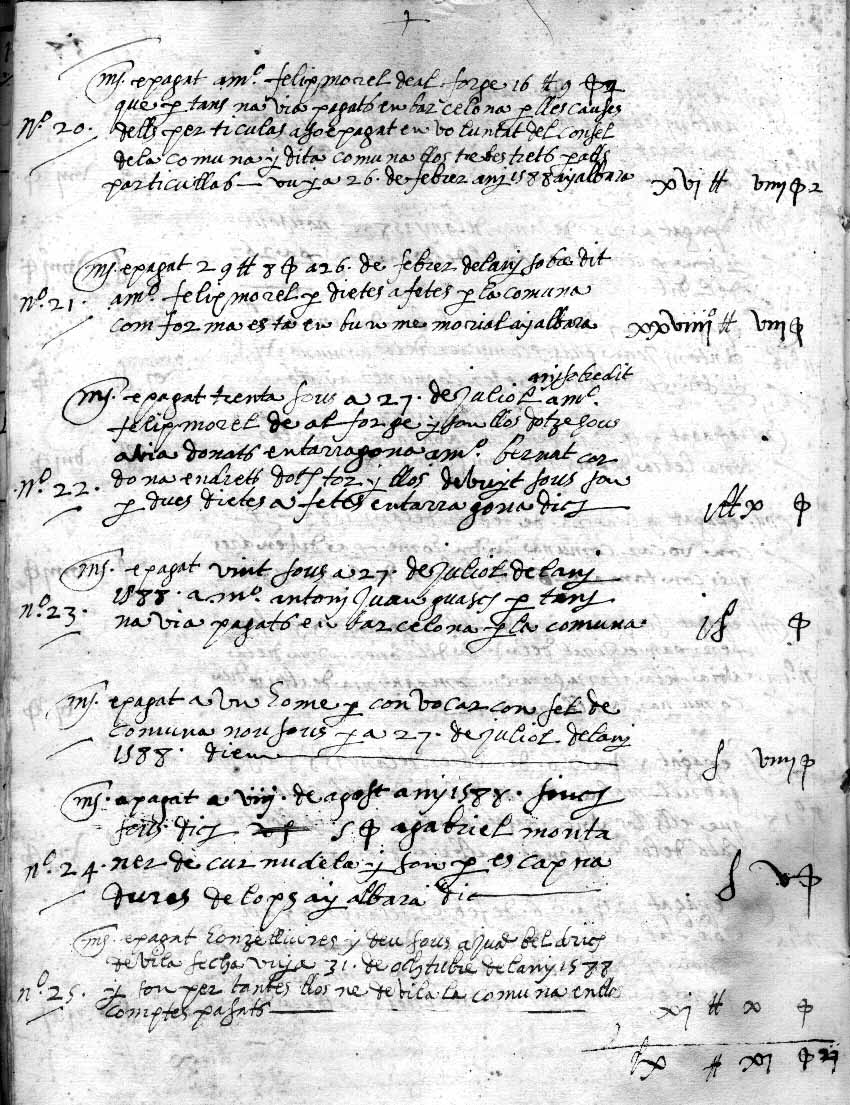 ms. e pagat a mº. felip morel de al forge 16 ₶ 9 
que per tans na via pagats en barcelona per lles causes
Nº. 20. dells perticulas aso e pagat en voluntat del consel
de la comuna y dita comuna llos te de strets palls
particullas vuy a 26. de febrer any 1588 ay albara xvi ₶ viiii 2
ms. e pagat 29 ₶ 8 a 26. de febrer del any sobre dit
nº. 21. a mº. felip morel per dietes a fetes per la comuna
com forma esta en bun me morial ay albara xxviiiiº ₶ viii
any sobredit
ms. e pagat trenta sous a 27. de Juliol a mº.
felip morel de al forge y son llos dotze sou
avia donats en tarragona a mº. bernat cor
nº. 22. dona en drets dotor y llos devuyt sous son
per dues dietes a fetes en tarragona dich i ₶ x
ms. e pagat vint sous a 27. de Juliol del any
nº. 23. 1588. a mº. antoni Juan guasch per tans
na via pagats en barcelona per la comuna i ₶
ms. e pagat a un home per convocar consel de
comuna nou sous per a 27. de Juliol del any
1588. dich viiii
ms. a pagat a viij. de agost any 1588. sinch
sous dich 5 a gabriel monta
nº. 24. ner de cornudela y son per es capna
dures de lops ay albara dic v
ms. e pagat honze lliures y deu sous a Juan beldrich
de vila fecha vuy a 31. de ochtubre del any 1588
nº. 25. y son per tantes llos ne devila la comuna en llos
comptes pasats xi ₶ x
lx ₶ xi